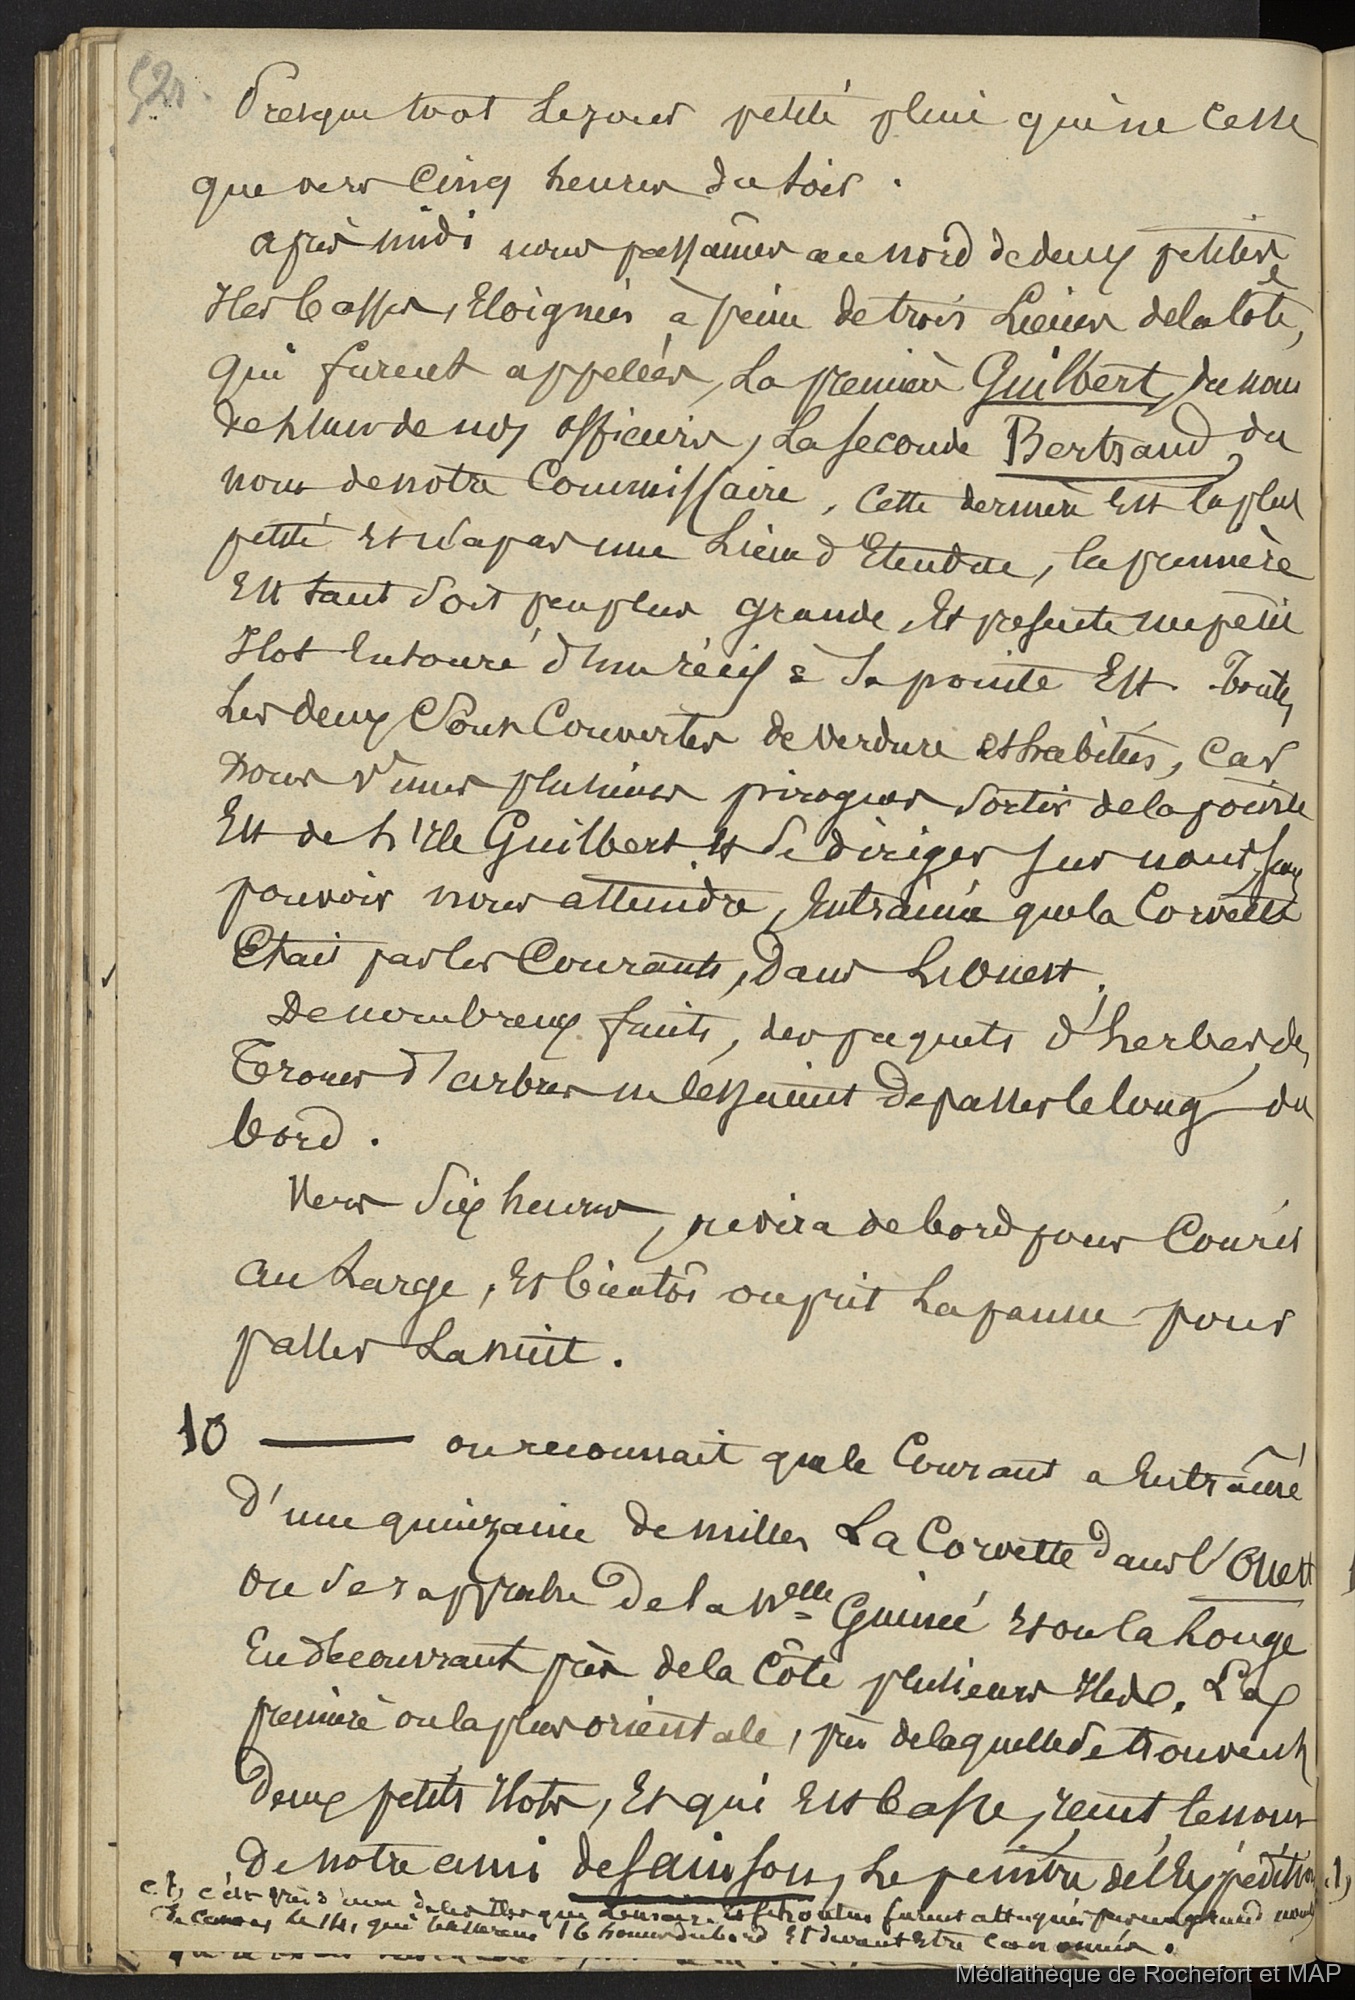 521.
Presque tout Lejour petite pluie qui ne Cesse
que vers Cinq heures du soir.
après midi nous passâmes au nord de deux petites
Iles basses, Eloignées à peine de trois Lieues de la Côte,
qui furent appelées, La première Guilbert, du nom
de L'un de nos officiers, La seconde Bertrand, du
nom de notre Commissaire, Cette dernière Est la plus
petite et n'a pas une Lieue d'Etendue, la première
Est tant soit peu plus grande, Et présente un petit
Ilot Entouré d'un récif à Sa pointe Est. Toutes
Les deux Sont Couvertes de verdure et habitées, Car
nous vîmes plusieurs pirogues Sortir de la pointe
Est de L'Ile Guilbert et Se diriger sur nous, sans
pouvoir nous atteindre, Entrainée que la Corvette
Etait par les Courants, Dans L'Ouest.
De nombreux fruits, des paquets d'herbes, des
Troncs D'arbres ne cessaient De passer le long du
bord.
Vers Six heures, on vira de bord pour Courir
au Large, Et bientôt on prit La panne pour
passer La nuit.
10 — on reconnait que le Courant a Entraîné
D'une quinzaine de milles La Corvette dans L'Ouest
on se rapproche De la Nelle Guinée Et on la Longe
En découvrant près de la Côte plusieurs Iles. La
première ou la plus orientale, près de laquelle Se trouvent
Deux petits Ilots, Et qui Est basse, reçut le nom
De notre ami deSainson, Le peintre de l'Expédition (1)
(1) C'est près d'une de ces Iles que furent attaqués par un grand nomb
de Canots, Le 14, qui blessèrent 16 hommes du bord Et durent Etre Canonnés.
Médiathèque de Rochefort et MAP